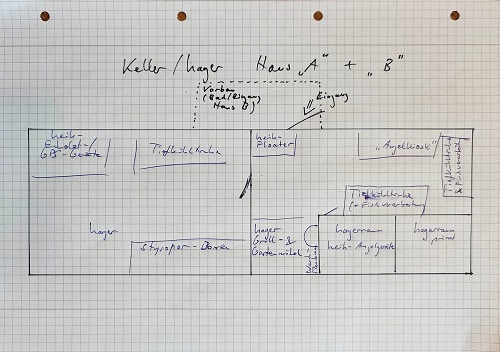 Keller/Lager Haus "A" + "B"
Vorbau
(Bad/Eingang
Haus B)
Eingang
Leih-
Echolot-/
GPS-Geräte
Tiefkühltruhe
Leih-
Floater
"Angelkiosk"
Tiefkühltruhe
Tiefkühltruhe
Lager
Styropor-Boxen
Lager
Grill- &
Gartenmöbel
Lagerraum
Leih-Angelgeräte
Lagerraum
privat